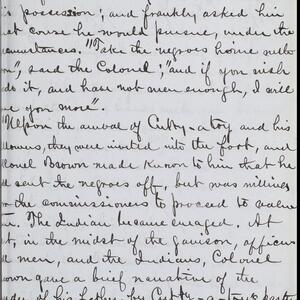 is possession; and frankly asked him
at course he would pursue, under the
cumstances. "Take the negroes home with
you", said the Colonel; "and if you wish
ds it, and have not men enough, I will
ve you more".
"Upon the arrival of Cutty-a-toy and his
llowers, they were invited into the foot, and
lonel Brown made known to him that he
d sent the negroes off, but was willing
r the commissioners to proceed to value
The Indian became enraged. At
t, in the midst of the garrison, officers
d men, and the Indians, Colonel
own gave a brief narrative of the
of his father by Cutty-a-toy's party